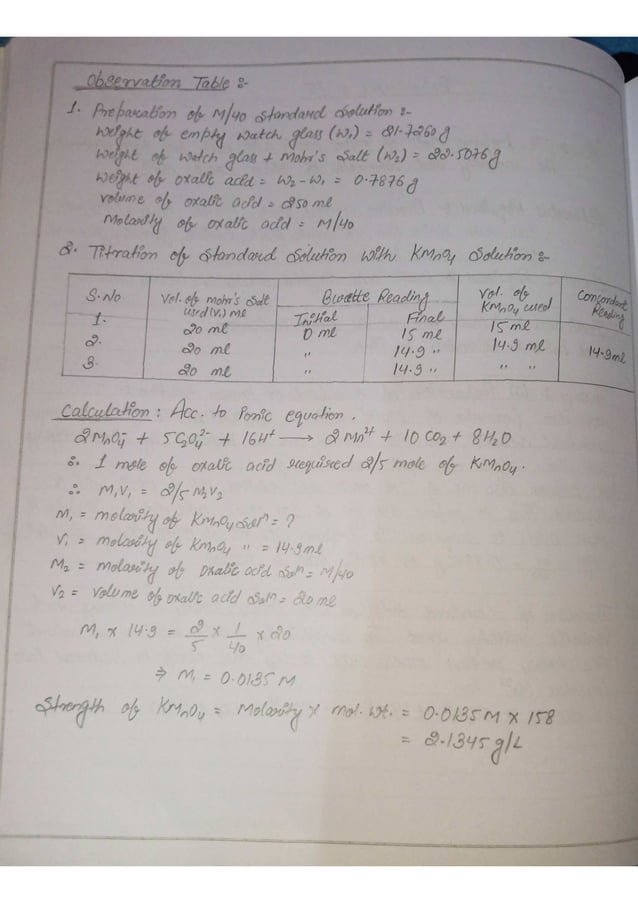 Observation Table :-
1. Preparation of M/40 standard solution :-
weight of empty watch glass (w₁) = 21.7260 g
weight of watch glass + Mohr's salt (w₂) = 22.5076 g
weight of oxalic acid = w₂ - w₁ = 0.7876 g
volume of oxalic acid = 250 ml
Molarity of oxalic acid = M/40
2. Titration of standard solution with KMnO₄ solution :-
S.No Vol. of mohr's salt used (V₁) ml Burette Reading Vol. of KMnO₄ used Concordant Reading
Initial Final
1. 20 ml 0 ml 15 ml 15 ml
2. 20 ml " 14.9 " 14.9 ml 14.9 ml
3. 20 ml " 14.9 " " "
Calculation : Acc. to Ionic equation.
2MnO₄⁻ + 5C₂O₄²⁻ + 16H⁺ → 2Mn²⁺ + 10CO₂ + 8H₂O
∴ 1 mole of oxalic acid required 2/5 mole of KMnO₄.
∴ M₁V₁ = 2/5 M₂V₂
M₁ = molarity of KMnO₄ Solⁿ = ?
V₁ = molarity of KMnO₄ " = 14.9 ml
M₂ = molarity of oxalic acid Solⁿ = M/40
V₂ = volume of oxalic acid Solⁿ = 20 ml
M₁ × 14.9 = 2/5 × 1/40 × 20
⇒ M₁ = 0.0135 M
Strength of KMnO₄ = Molarity × mol. wt. = 0.0135 M × 158
= 2.1345 g/L